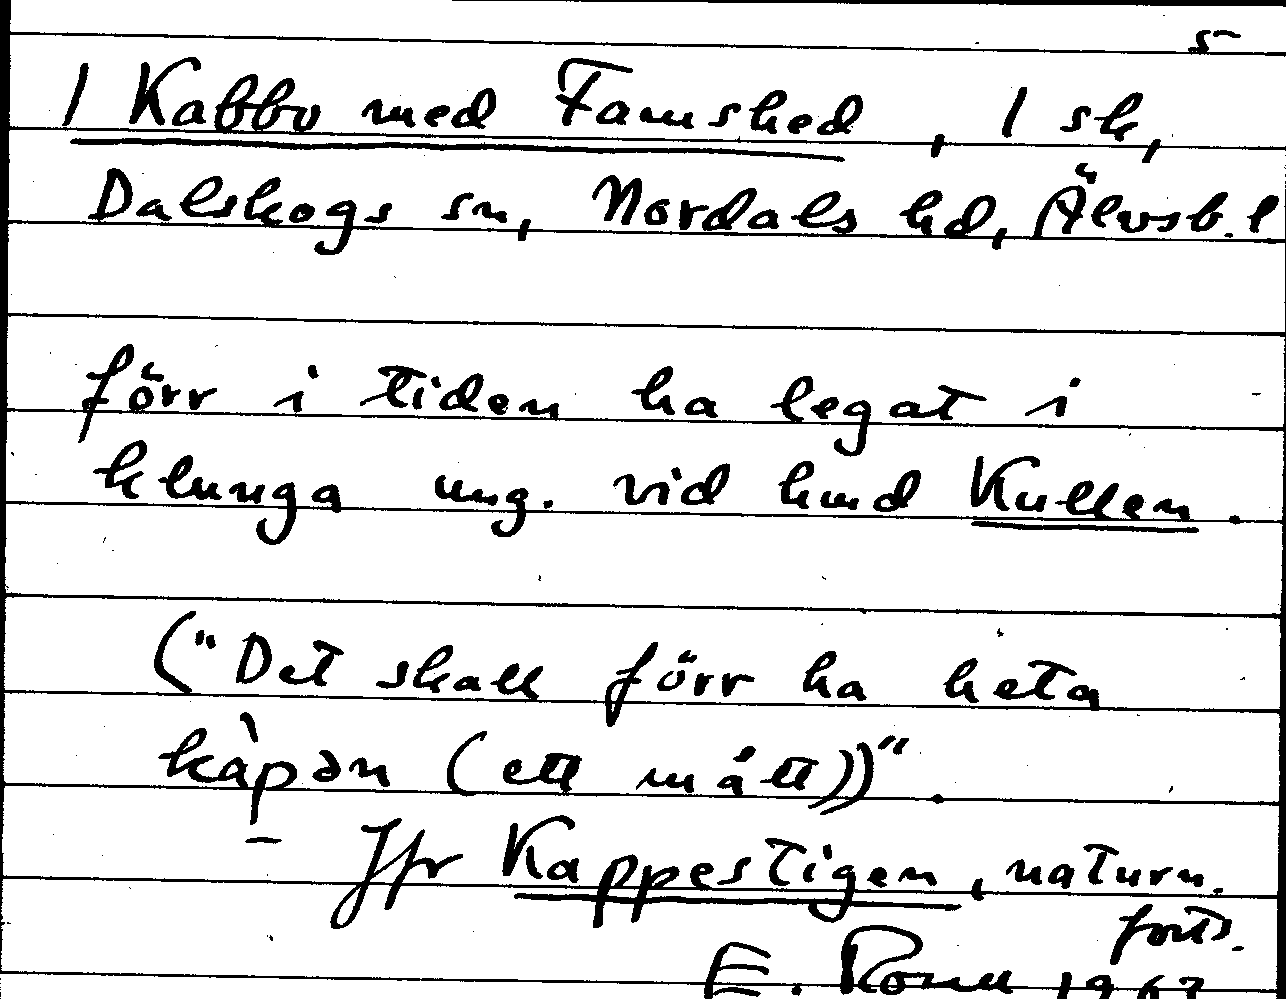 5
1 Kabbo med Famshed, 1 sk,
Dalskogs sn, Nordals hd, Älvsb. l
förr i tiden ha legat i
klunga ung. vid hmd Kullen.
("Det skall förr ha heta
kàpən (ett mått))".
Jfr Kappestigen, naturn.
forts.
E. 1963